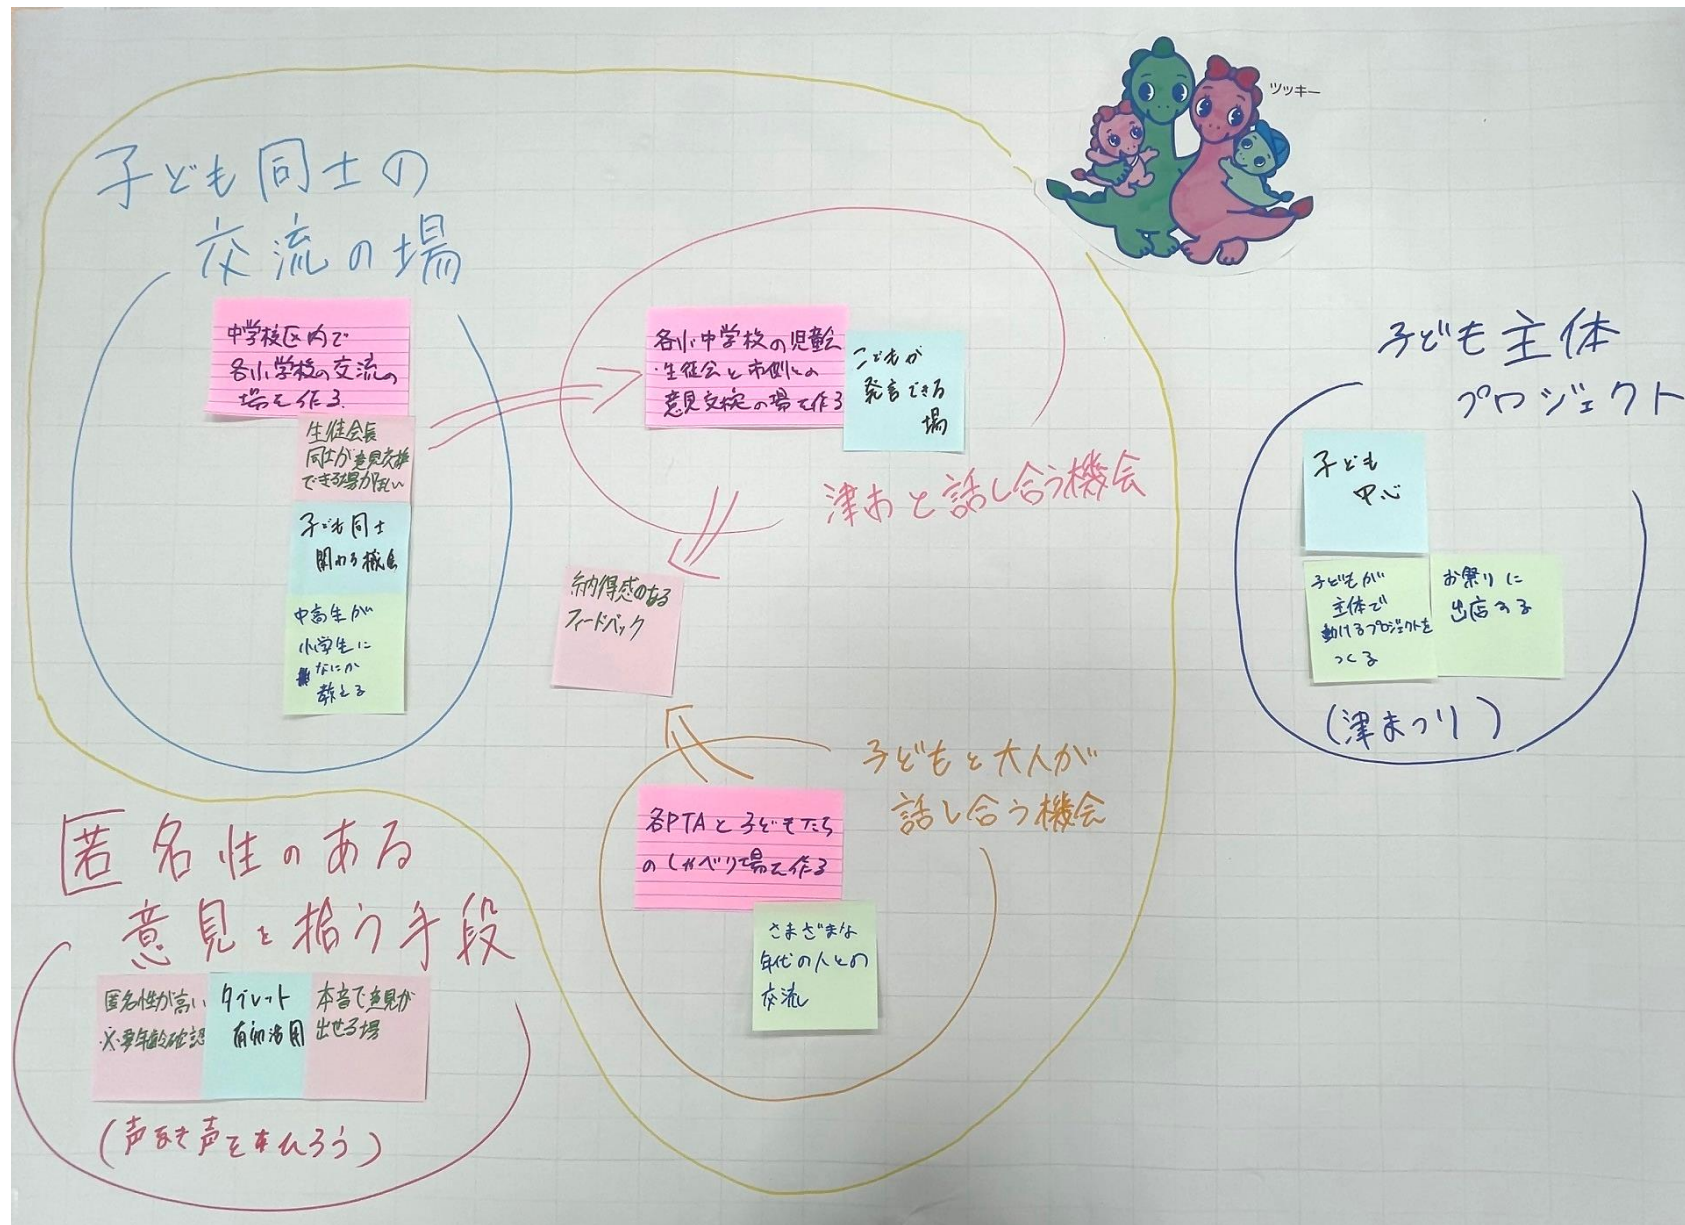 ツッキー
子ども同士の
交流の場
中学校区内で
各小学校の交流の
場を作る
生徒会長
同士が意見交換
できる場が欲しい
子ども同士
関わる機会
中高生が
小学生に
なにか
教える
各小中学校の児童会
・生徒会と市側との
意見交換の場を作る
こどもが
発言できる
場
津市と話し合う機会
納得感のある
フィードバック
子どもと大人が
話し合う機会
各PTAと子どもたち
のしゃべり場を作る
さまざまな
年代の人との
交流
子ども主体
プロジェクト
子ども
中心
子どもが
主体で
動けるプロジェクトを
つくる
お祭りに
出店する
(津まつり)
匿名性のある
意見を拾う手段
匿名性が高い
※要年齢確認
タブレット
有効活用
本音で意見が
出せる場
(声なき声をひろう)